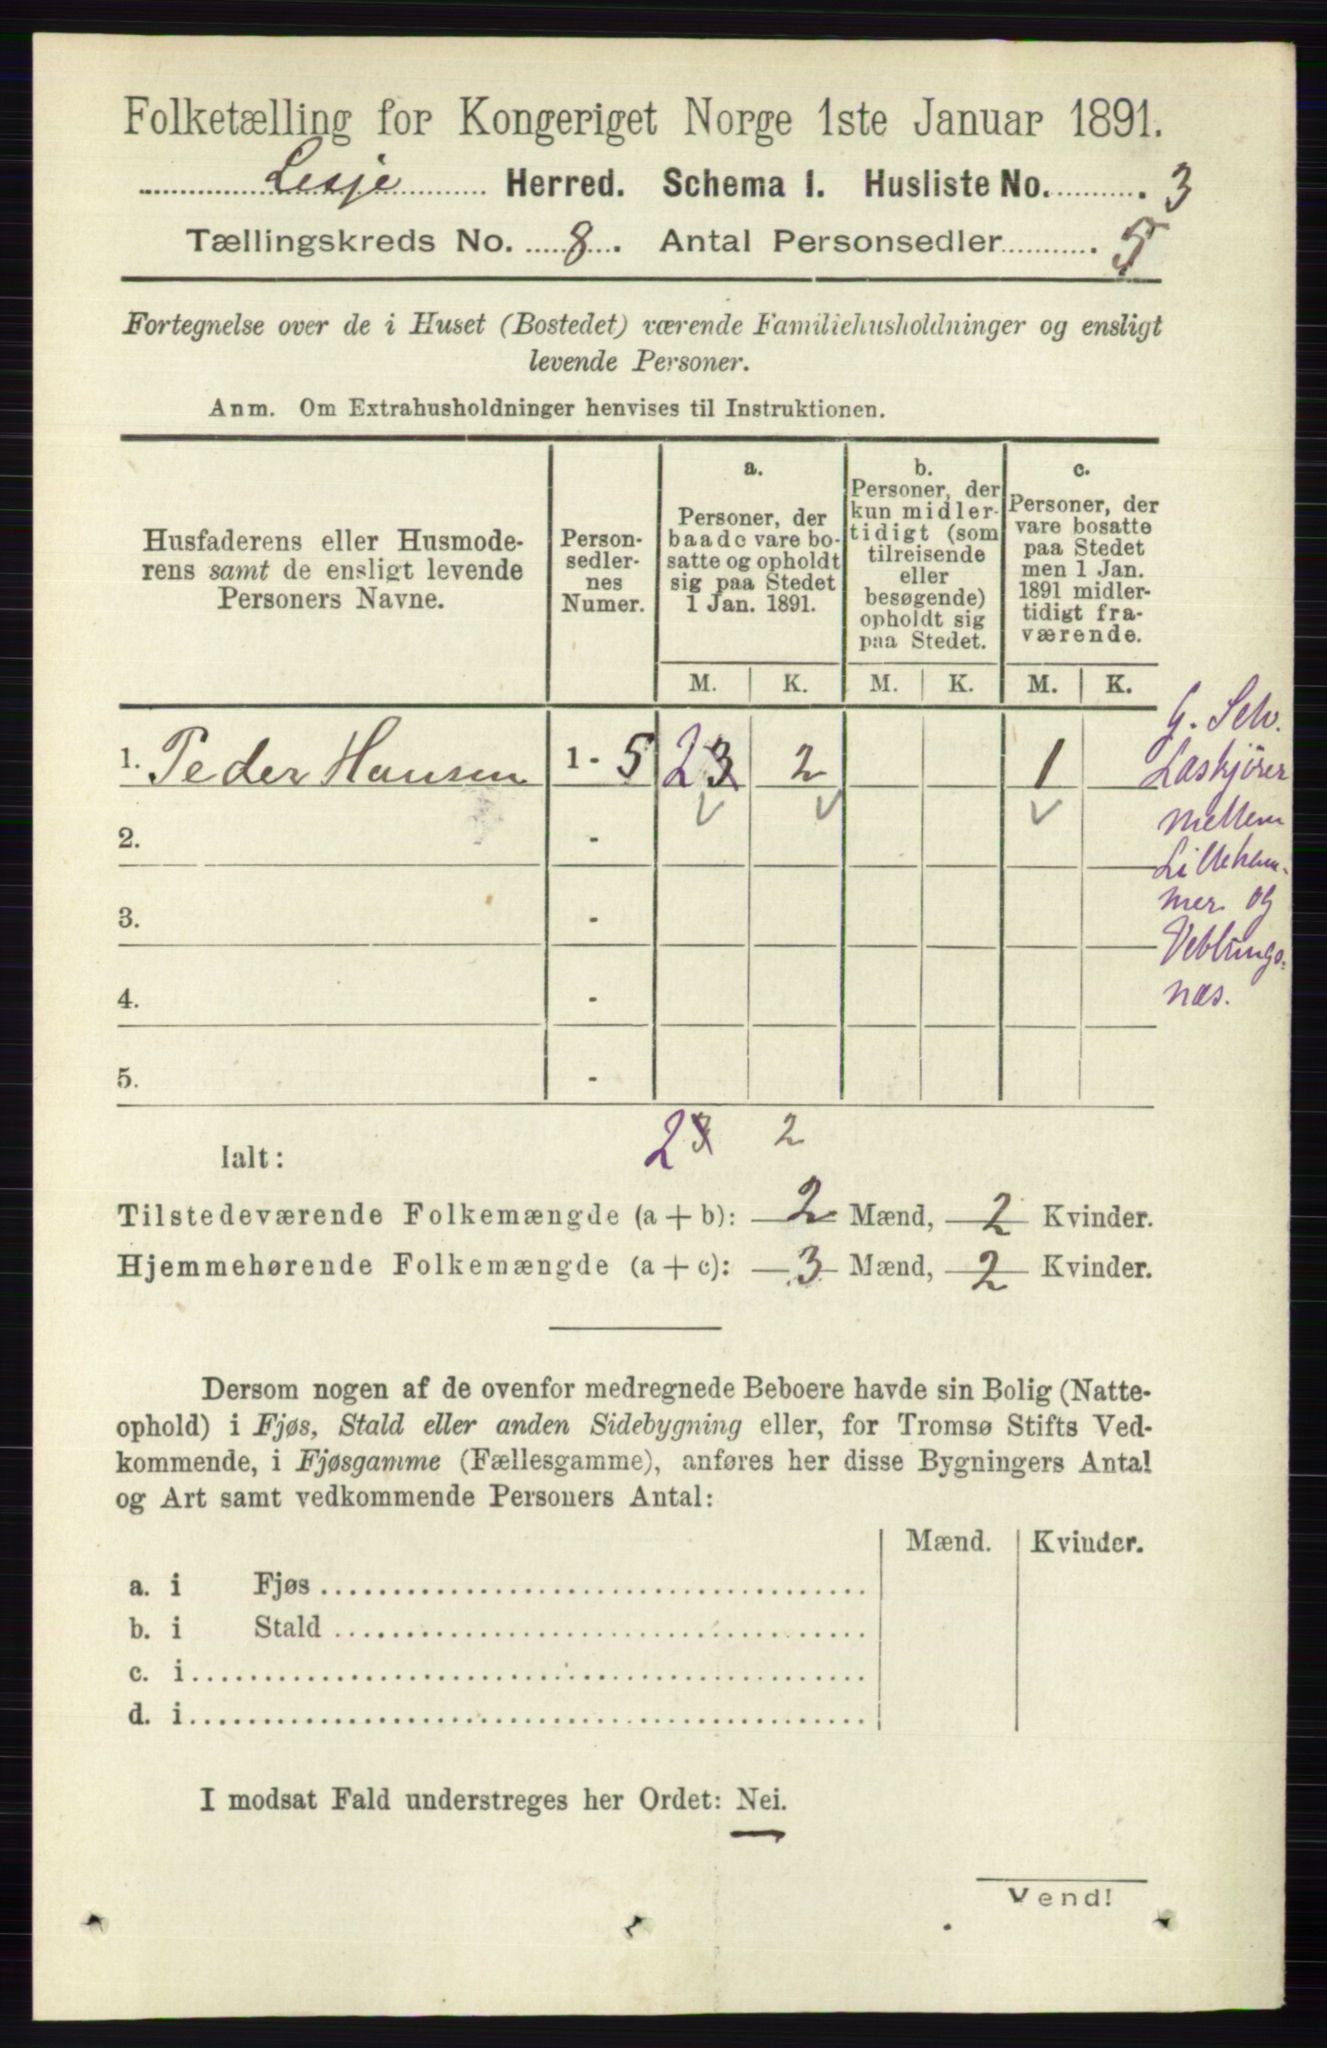 Folketælling for Kongeriget Norge 1ste Januar 1891.
Lesje Herred. Schema I. Husliste No. 3
Tællingskreds No. 8. Antal Personsedler 5
Fortegnelse over de i Huset (Bostedet) værende Familiehusholdninger og ensligt
levende Personer.
Anm. Om Extrahusholdninger henvises til Instruktionen.
Husfaderens eller Husmode-
rens samt de ensligt levende
Personers Navne.
Person-
sedler-
nes
Numer.
a.
Personer, der
baade vare bo-
satte og opholdt
sig paa Stedet
1 Jan. 1891.
b.
Personer, der
kun midler-
tidigt (som
tilreisende
eller
besøgende)
opholdt sig
paa Stedet.
c.
Personer, der
vare bosatte
paa Stedet
men 1 Jan.
1891 midler-
tidigt fra-
værende.
M. K. M. K. M. K.
1. Peder Hansen 1 - 5 2 3 2 1
2. -
3. -
4. -
5. -
G. Selv.
Læskjører
mellem
Lilleham-
mer og
Veblungs-
næs.
Ialt: 2 3 2
Tilstedeværende Folkemængde (a + b): 2 Mænd, 2 Kvinder.
Hjemmehørende Folkemængde (a + c): 3 Mænd, 2 Kvinder.
Dersom nogen af de ovenfor medregnede Beboere havde sin Bolig (Natte-
ophold) i Fjøs, Stald eller anden Sidebygning eller, for Tromsø Stifts Ved-
kommende, i Fjøsgamme (Fællesgamme), anføres her disse Bygningers Antal
og Art samt vedkommende Personers Antal:
Mænd. Kvinder.
a. i Fjøs
b. i Stald
c. i
d. i
I modsat Fald understreges her Ordet: Nei.
Vend!